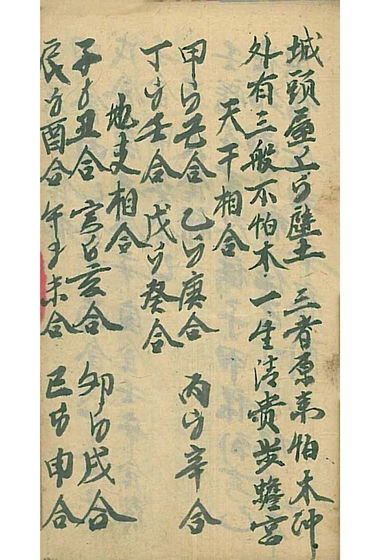 城頭屋上与壁土 三者原来怕木冲
外有三般不怕木 一生清贵步蟾宫
天干相合
甲与己合 乙与庚合 丙与辛合
丁与壬合 戊与癸合
地支相合
子与丑合 寅与亥合 卯与戌合
辰与酉合 午与未合 巳与申合